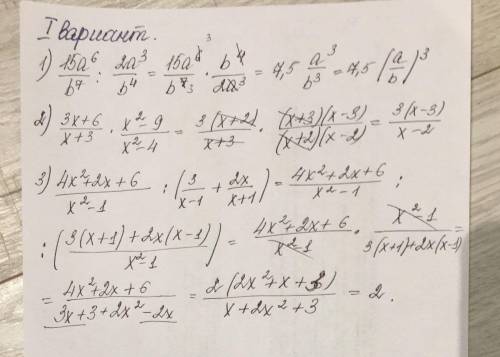 I вариант.
1) 15a⁶/b⁷ : 2a³/b⁴ = 15a⁶ ³/b⁷ ₃ · b⁴/2a³ = 7,5 a³/b³ = 7,5 (a/b)³
2) (3x+6)/(x+3) · (x²-9)/(x²-4) = 3(x+2)/(x+3) · (x+3)(x-3)/(x+2)(x-2) = 3(x-3)/(x-2)
3) (4x²+2x+6)/(x²-1) : (3/(x-1) + 2x/(x+1)) = (4x²+2x+6)/(x²-1) :
: ((3(x+1)+2x(x-1))/(x²-1)) = (4x²+2x+6)/(x²-1) · (x²-1)/(3(x+1)+2x(x-1)) =
= (4x²+2x+6)/(3x+3+2x²-2x) = 2(2x²+x+3)/(x+2x²+3) = 2.